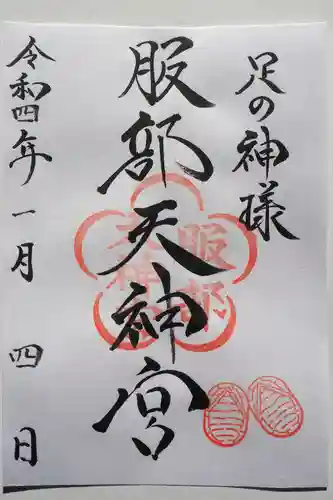 足の神様
服部天神宮
令和四年一月四日
服部
天神宮